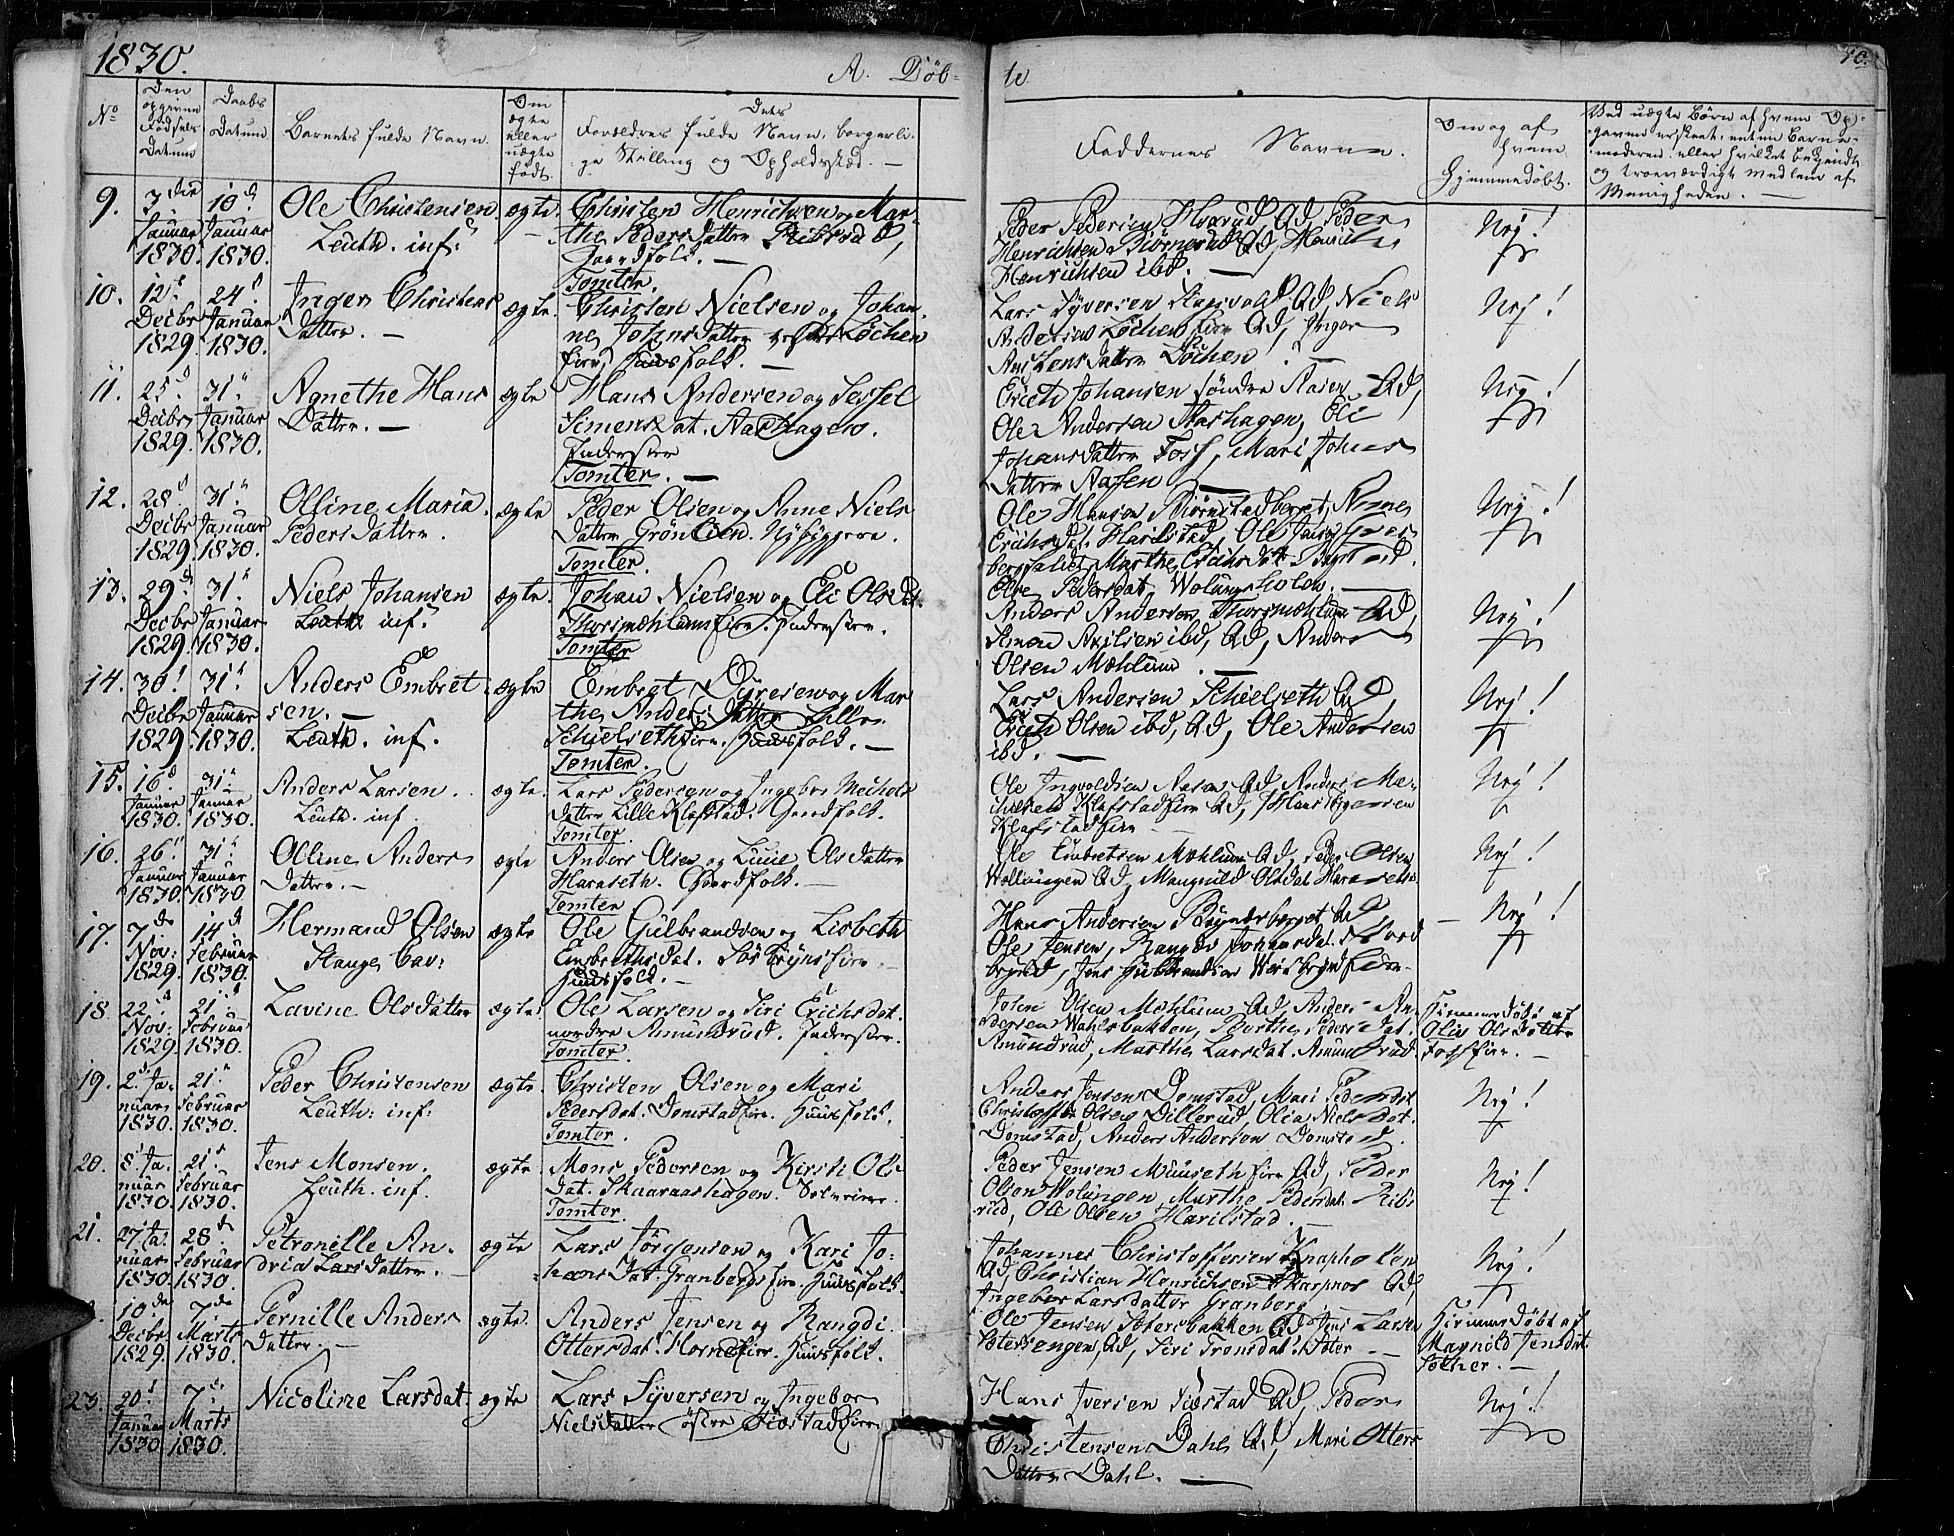 1830.
A. Døb-
te
40.
No
Den opgivne Fødsels Datum
Daabs Datum
Barnets fulde Navn.
Om ægte eller uægte født.
Dets Forældres fulde Navn, borgerlige Stilling og Opholdsted. —
Faddernes Navne.
Om og af hvem hjemmedøbt.
Ved uægte Børn af hvem Opgaven er skeet, enten Barnemoderen eller hvilket bekjendt og troeværdigt Medlem af Menigheden. —
9.
7de Januar 1830.
10d Januar 1830.
Ole Christensen
Leuth. inf:
ægte.
Christen Henrichsen og Mar-
the Pedersdatter Ribsrud,
Gaardfolk. —
Tomter.
Peder Pedersen Huserud Ad, Peder
Henrichsen Biørnerud Ad,
Henrichsen ibd. —
Nej!
10.
12d Decbr 1829.
24d Januar 1830.
Inger Christens
Datter. —
ægte.
Christen Nielsen og Johan-
ne Johnsdatter Løchen
Eier, Huusfolk. —
Lars Syversen Slagsvold Ad, Niels
Andersen Løcheneier Ad, Inger
datter Løchen. —
Nej!
11.
25d Decbr 1829.
31d Januar 1830.
Agnethe Hans
Datter. —
ægte
Hans Andersen og Sessel
Simensdat. Aashagen.
Inderster
Tomter. —
Erich Johansen søndre Aasen Ad,
Ole Andersen Aashagen, Eli
Johansdatter Foss, Mari Johns
datter Aasen
Nej!
12.
28d Decbr 1829.
31d Januar 1830.
Olline Maria
Pedersdatter.
ægte
Peder Olsen og Anne Niels
datter Grønlien. Nybyggere.
Tomter.
Ole Hansen Biørnstadberget, Anne
Erichsdat. Harilstad, Ole Jansen
Marthe Erichsdatt
Else Pedersdat.
Nej!
13.
29d Decbr 1829.
31d Januar 1830.
Niels Johansen
Leuth inf:
ægte.
Johan Nielsen og Eli Olsdat.
Thorsmæhlumeier. Inderster.
Tomter
Anders Andersen Thorsmæhlum Ad,
Simen Axilsen ibd, Ad, Anders
Olsen Mæhlum —
Nej!
14.
30d Decbr 1829.
31d Januar 1830.
Anders Embret-
sen. —
Leuth. inf.
ægte
Embret Dyresen og Mar
the Andersdatter Lille-
Schielsetheier. Huusfolk. —
Tomter.
Lars Andersen Schielseth Ad,
Erich Olsen ibd, Ad, Ole Andersen
ibd. —
Nej!
15.
16d Januar 1830.
31d Januar 1830.
Anders Larsen.
Leuth. inf.
ægte.
Lars Pedersen og Ingebor Michels
datter Lille Klafstad. Gaardfolk.
Tomter
Ole Ingvoldsen Aasen Ad, Anders Mi-
chelsen Klafstadeier Ad, Hans
Klafstadeier —
Nej!
16.
26d Januar 1830.
31d Januar 1830
Olline Anders
datter. —
ægte
Anders Olsen og Olsdatter
Haraseth. Gaardfolk. —
Tomter
Ole Embretsen Mæhlum Ad, Peder Olsen
Wollungen Ad, Mangnild Olsdat. Haraseth.
Nej!
17.
7de Nov: 1829.
14d Februar 1830.
Hermand Olsen
Stange
ægte
Ole Gulbrandsen og Lisbeth
Embrethsdat.
Huusfolk. —
Hans Andersen Ad
Ole Jensen, Johansdat.
Jens Gulbrandsen
— Nej!
18.
22d Nov: 1829.
21d Februar 1830.
Lavine Olsdatter
ægte.
Ole Larsen og Siri Erichsdat.
nordre Amundrud. Inderster.
Tomter.
John Olsen Mæhlum Ad, Anders An-
dersen Wahlsbakken, Berthe Peders Dat.
Amundrud, Marthe Larsdat. Amundrud.
Hiemmedøbt af
Olia Olsdatter
Fosseier. —
19.
2d Januar 1830.
21d Februar 1830.
Peder Christensen
Leuth: inf:
ægte.
Christen Olsen og Mari
Pedersdat. Domstadeier. Huusfolk.
Tomter.
Anders Jensen Domstad, Mari Pedersdat
Christoffer Olsen Dillerud, Olia Nielsdat.
Domstad, Anders Andersen Domstad.
Nej!
20.
8d Januar 1830.
21d Februar 1830.
Jens Monsen.
Leuth. inf.
ægte.
Mons Pedersen og Kirsti Ols
dat. Skaaraashagen.
Tomter.
Peder Jensen Muusetheier Ad, Peder
Olsen Wolungen, Marthe Pedersdat. Ribs
rud, Ole Olsen Harilstad. —
Nej!
21.
27 Januar 1830
28d Februar 1830.
Petronille An-
dria Larsdatter. —
ægte
Lars Jørgensen og Kari Jo-
hansdat. Granbergseier. Huusfolk.
Johannes Christoffersen Knapholten
Ad, Christian Henrichsen Skarpnos Ad,
Ingebor Larsdatter Granberg
Nej!
10de Decbr 1829.
7de Marts 1830.
Pernille Anders
datter. —
ægte.
Anders Jensen og Rangdi
Ottersdat. Horneeier. Huusfolk.
Ole Jensen Sotersbakken Ad, Jens Larsen
Sotersengen, Ad, Siri Tronsdat. Soter —
Hiemmedøbt af
Magnild Jensdat
Sother. —
23.
20d Januar 1830
7de Marts 1830.
Nicoline Larsdat.
ægte
Lars Syversen og Ingebor
Nielsdatter østre Fiøstadeier
Hans Iversen Fiøstad Ad, Peder
Christensen Dahl Ad, Mari Otters
datter Dahl. —
Nej!